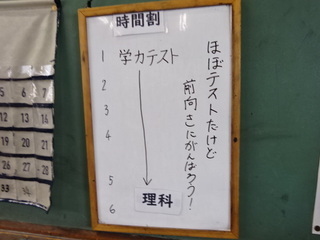 時間割
1 学力テスト
2
3
4
5
理科
6
ほぼテストだけど
前向きにがんばろう!
5 6 7
12 13 14
19 20 21
26 27 28